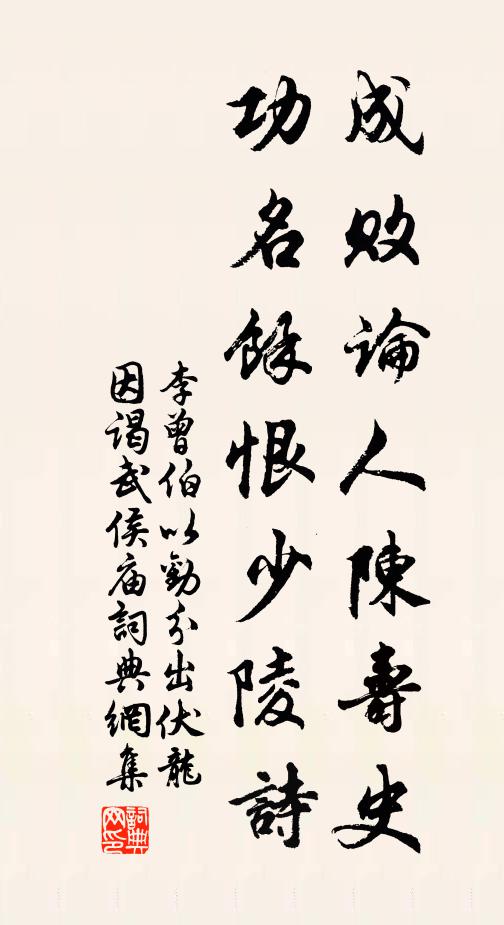 成敗論人陳壽史
功名餘恨少陵詩
李曾伯以勸分出伏龍
因謁武侯廟詞典網集
詞典
网印